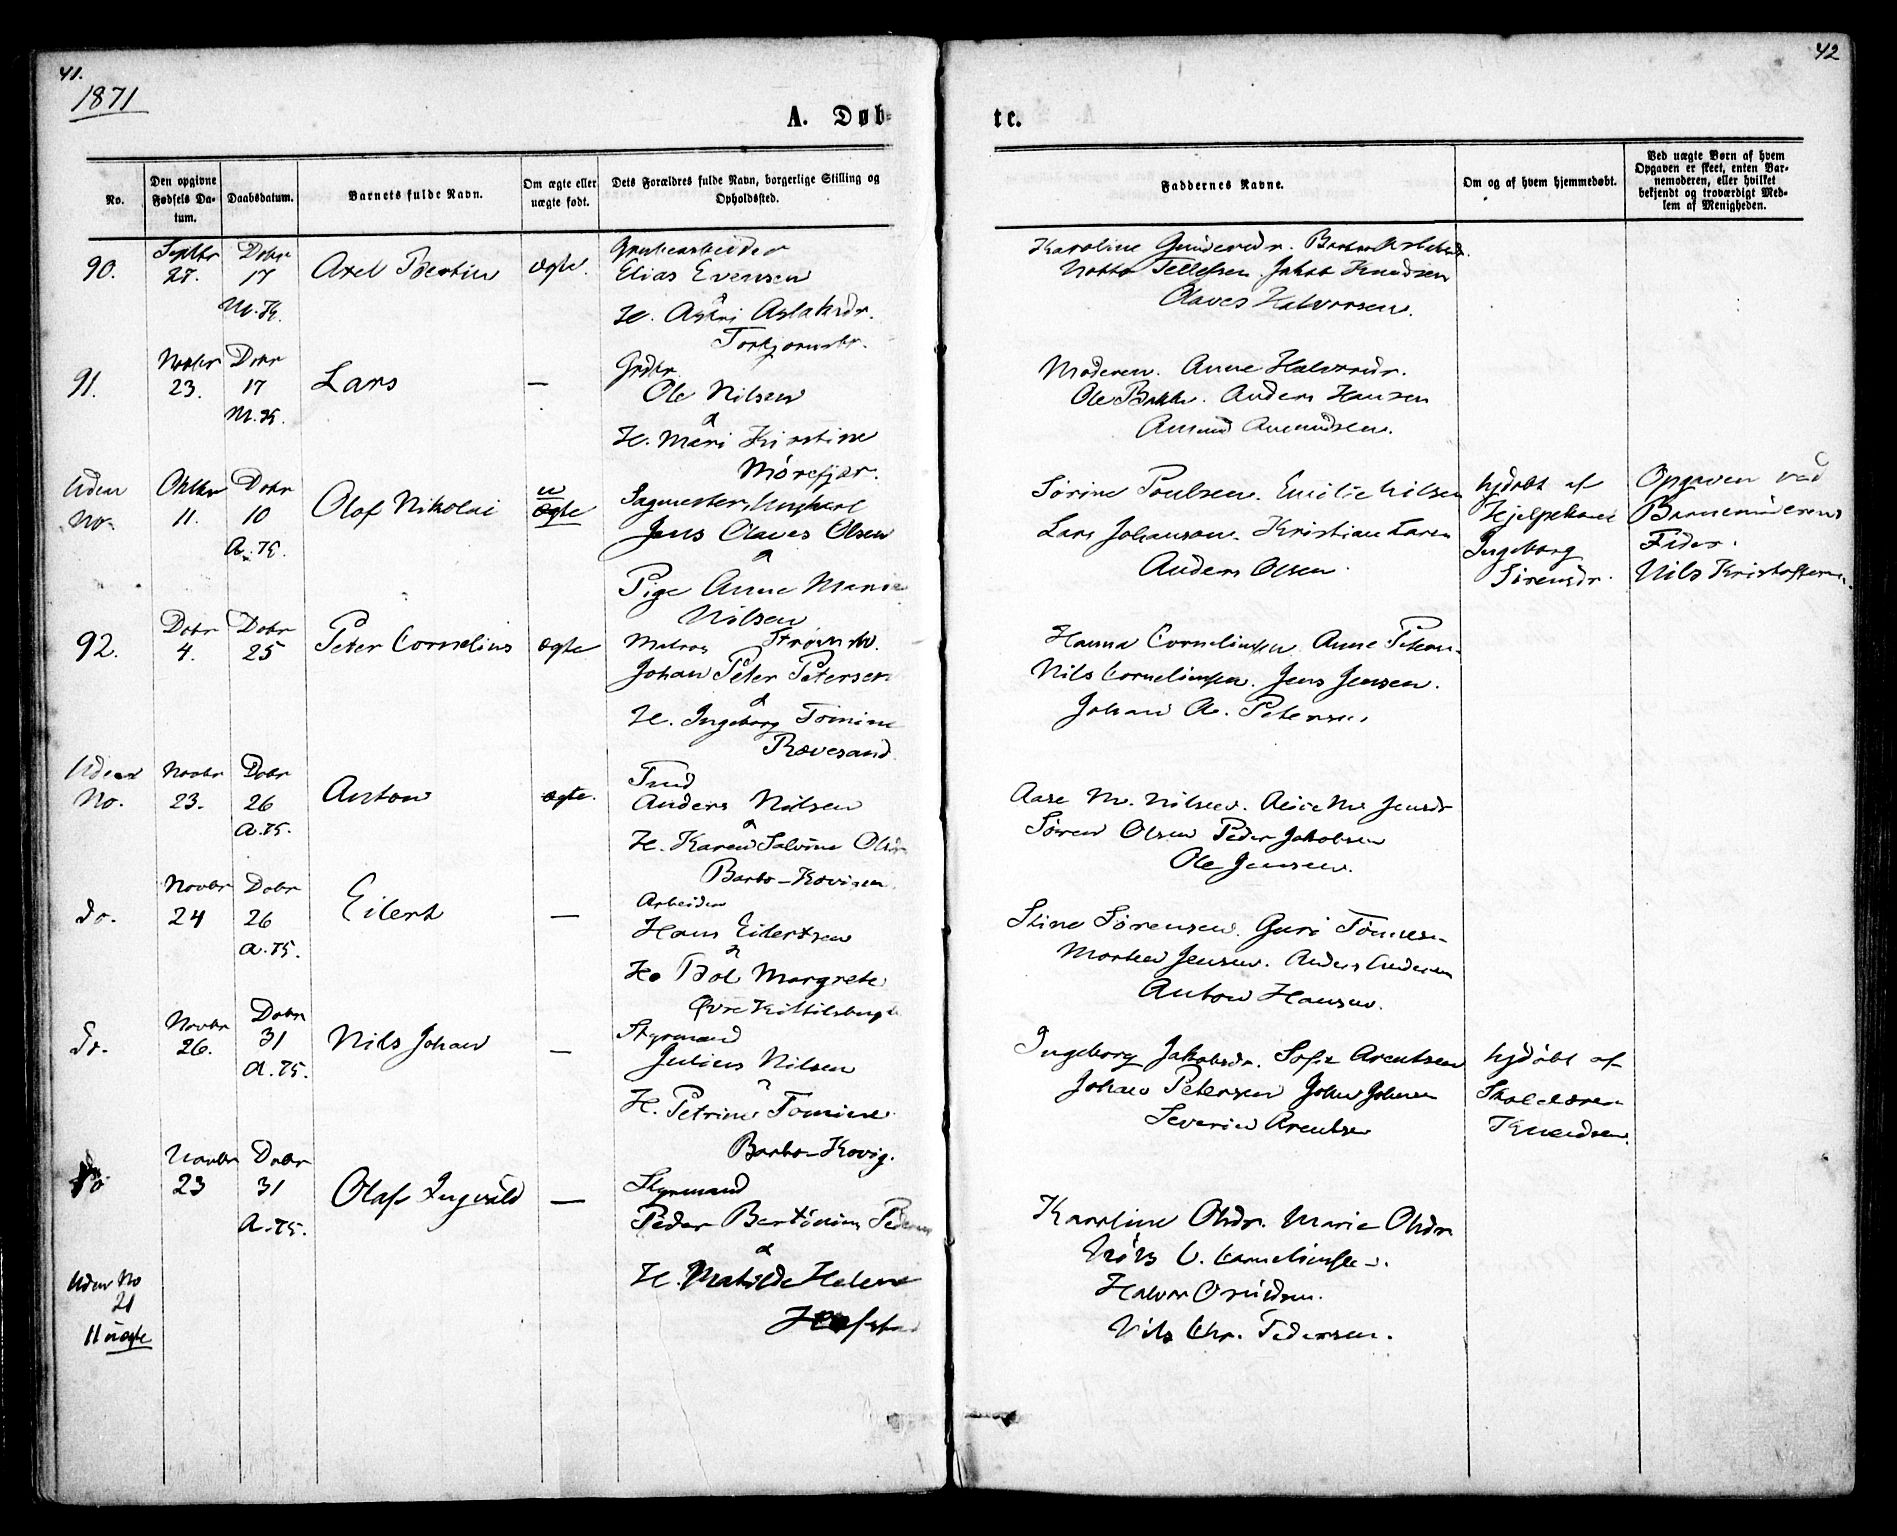 41.
1871
A. Døb-
No.
Den opgivne Fødsels Da-tum.
Daabsdatum.
Barnets fulde Navn.
Om ægte eller uægte født.
Dets Forældres fulde Navn, borgerlige Stilling og Opholdssted.
90.
Septbr 27.
Dcbr 17
M.K.
Axel Bertin
ægte.
Grubearbeider
Elias Evensen
&
H. Astri Aslaksdr.
Torbjørnsbr.
91.
Novbr 23.
Dcbr 17
M.K.
Lars
—
Grdbr.
Ole Nilsen
&
H. Mari Kirstine
Mørefjær.
Uden No.
Oktbr 11.
Dcbr 10
A.K.
Olaf Nikolai
u
ægte
Sagmester, Ungkarl
Jens Olaves Olsen
&
Pige Anne Marie
Nilsen
92.
Dcbr 4.
Dcbr 25
Peter Cornelius
ægte
Matros
Johan Peter Petersen
&
H. Ingeborg Tomine
Rævesand
Uden No.
Novbr 23.
Dcbr 26
A.K.
Anton
ægte.
Tmd
Anders Nilsen
&
H. Karen Salvine Olsdr
Barbo-
do.
Novbr 24
Dcbr 26
A.K.
Eilert
—
Arbeider
Hans Eilertsen
&
H. Bol Margrete
Øvre Kittilsbugt
Do.
Novbr 26.
Dcbr 31
A.K.
Nils Johan
—
Styrmand
Julius Nilsen
&
H. Petrine Tomine
Barbo-Kovig.
Do
Novbr 23
Dcbr 31
A.K.
Olaf Ingvald
—
Styrmand
Peder Bertinius Pedersen
&
H. Matilde Helene
Uden No
21
11 uægte
42
te.
Faddernes Navne.
Om og af hvem hjemmedøbt.
Ved uægte Børn af hvem Opgaven er skeet, enten Bar-nemoderen, eller hvilket bekjendt og troværdigt Med-lem af Menigheden.
Karoline Gundersdr. Barbro Aslaksdr.
Notto Tellefsen. Jakob Knudsen
Olaves Halvorsen.
Moderen. Anne Halvorsdr.
Ole Bakke. Anders Hansen
Amund Amundsen.
Sørine Poulsen. Emilie Nilsen
Lars Johanson. Kristian Larsen
Anders Olsen.
hjdøbt af
Hjelpekone
Ingeborg
Sørensdr.
Opgaven ved
Barnemoderens
Fader.
Nils Kristoffersen.
Hanna Corneliussen. Anne Petersen.
Nils Corneliussen. Jens Jensen.
Johan A. Petersen.
Aase M. Nilsen. Alice M. Jensdr
Søren Olsen Peder Jakobsen
Ole Jensen.
Stine Sørensen. Guri Tönnesen
Morten Jensen. Anders Andersen
Anton Hansen.
Ingeborg Jakobsdr. Sofie Arentsen
Johan Petersen John Johnsen
Severin Arentsen
hjdøbt af
Skolelærer
Knudsen.
Karoline Olsdr. Marie Olsdr
Niels C. Corneliussen.
Halvor
Nils Chr. Pedersen.